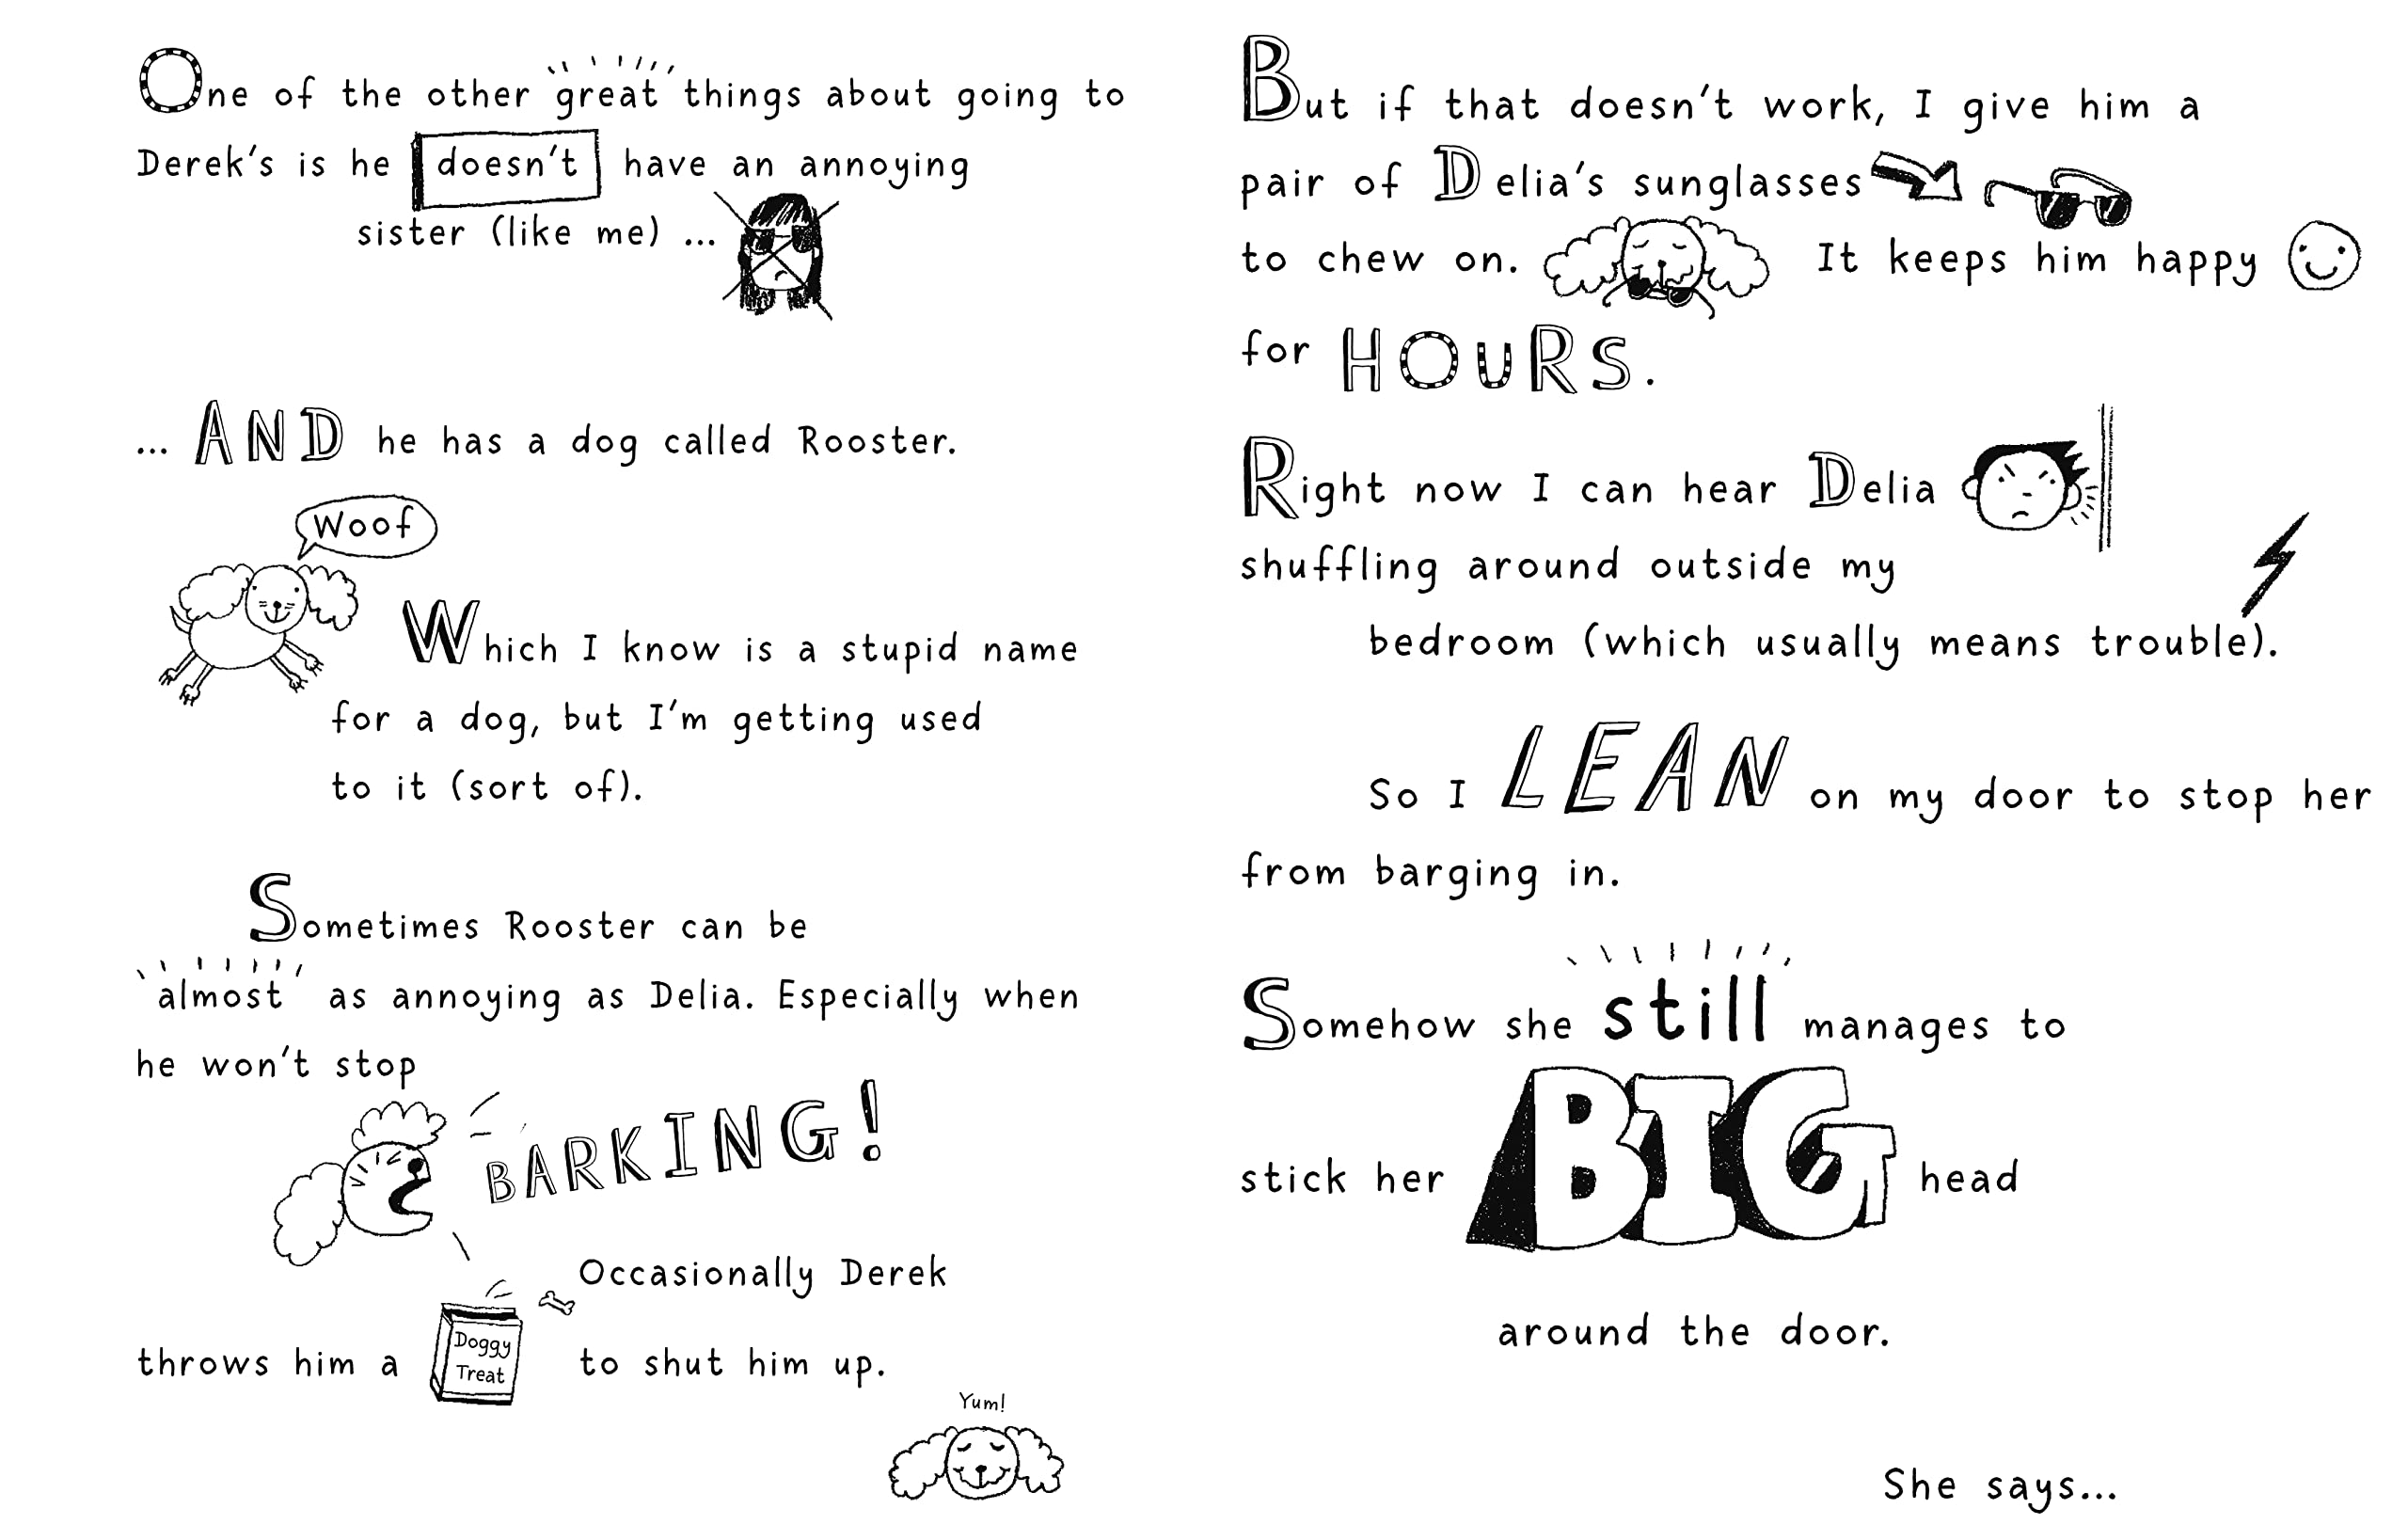 One of the other great things about going to
Derek's is he doesn't have an annoying
sister (like me) ...
... AND he has a dog called Rooster.
Woof
Which I know is a stupid name
for a dog, but I'm getting used
to it (sort of).
Sometimes Rooster can be
almost as annoying as Delia. Especially when
he won't stop
BARKING!
Occasionally Derek
throws him a Doggy Treat to shut him up.
Yum!
But if that doesn't work, I give him a
pair of Delia's sunglasses
to chew on. It keeps him happy
for HOURS.
Right now I can hear Delia
shuffling around outside my
bedroom (which usually means trouble).
So I LEAN on my door to stop her
from barging in.
Somehow she still manages to
stick her BIG head
around the door.
She says...